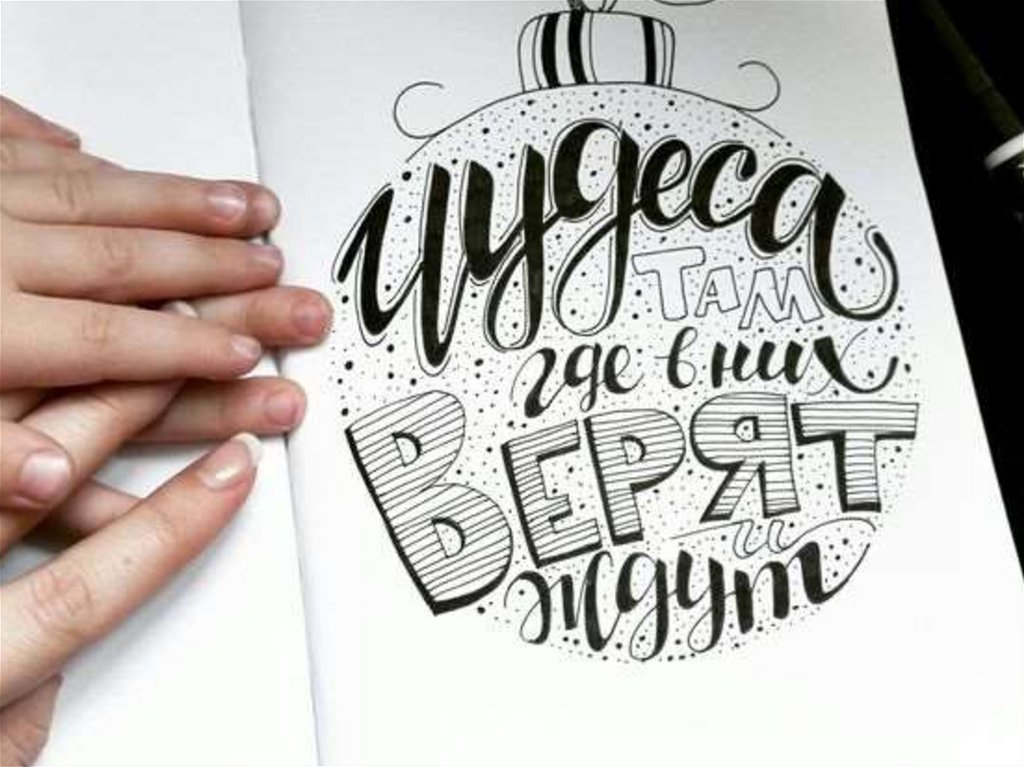 чудеса
там
где в них
Верят
и
ждут